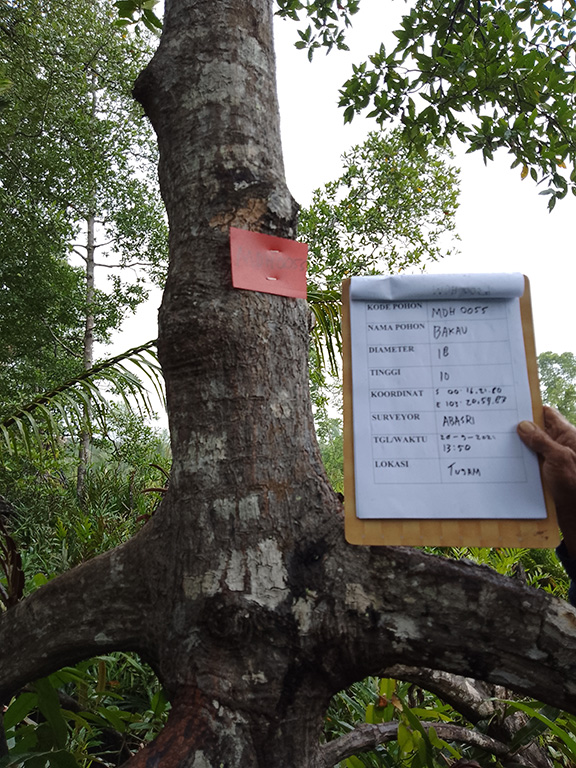 KODE POHON MDH 0055
NAMA POHON BAKAU
DIAMETER 18
TINGGI 10
KOORDINAT S 00.16.21.80
E 103.20.59.83
SURVEYOR ABASRI
TGL/WAKTU 28-9-2021
13:50
LOKASI TUJAM